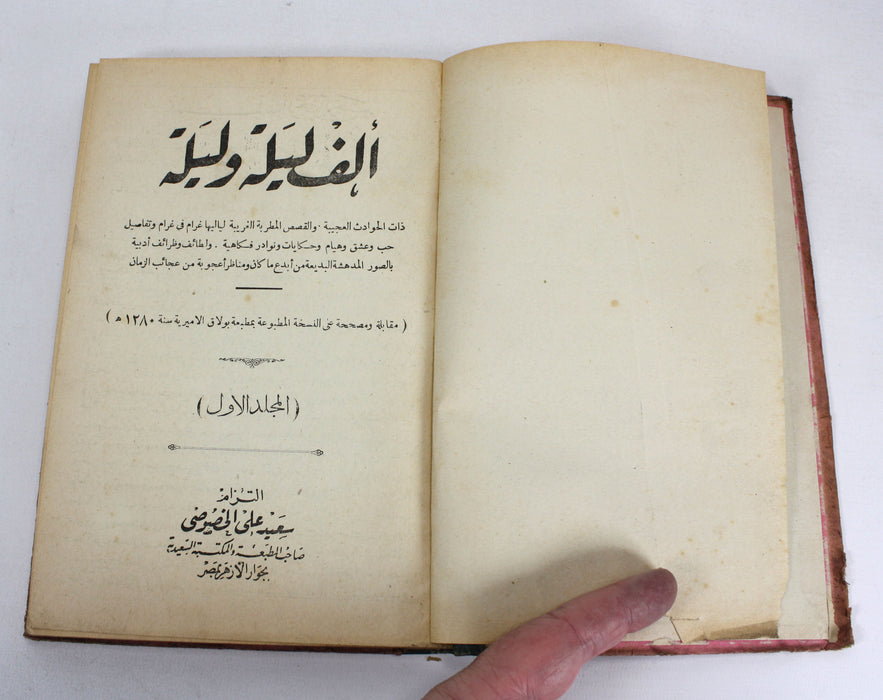 ألف ليلة وليلة
ذات الحوادث العجيبة . والقصص المطربة الغريبة لياليها غرام فى غرام وتفاصيل
حب وعشق وهيام وحكايات ونوادر فكاهية . ولطائف وظرائف أدبية
بالصور المدهشة البديعة من أبدع ما كان ومناظر أعجوبة من عجائب الزمان
( مقابلة ومصححة على النسخة المطبوعة بمطبعة بولاق الاميرية سنة ١٢٨٠ ه )
( المجلد الاول )
التزام
سعيد على الخصوصى
صاحب المطبعة والمكتبة السعيدية
بجوار الأزهر بمصر